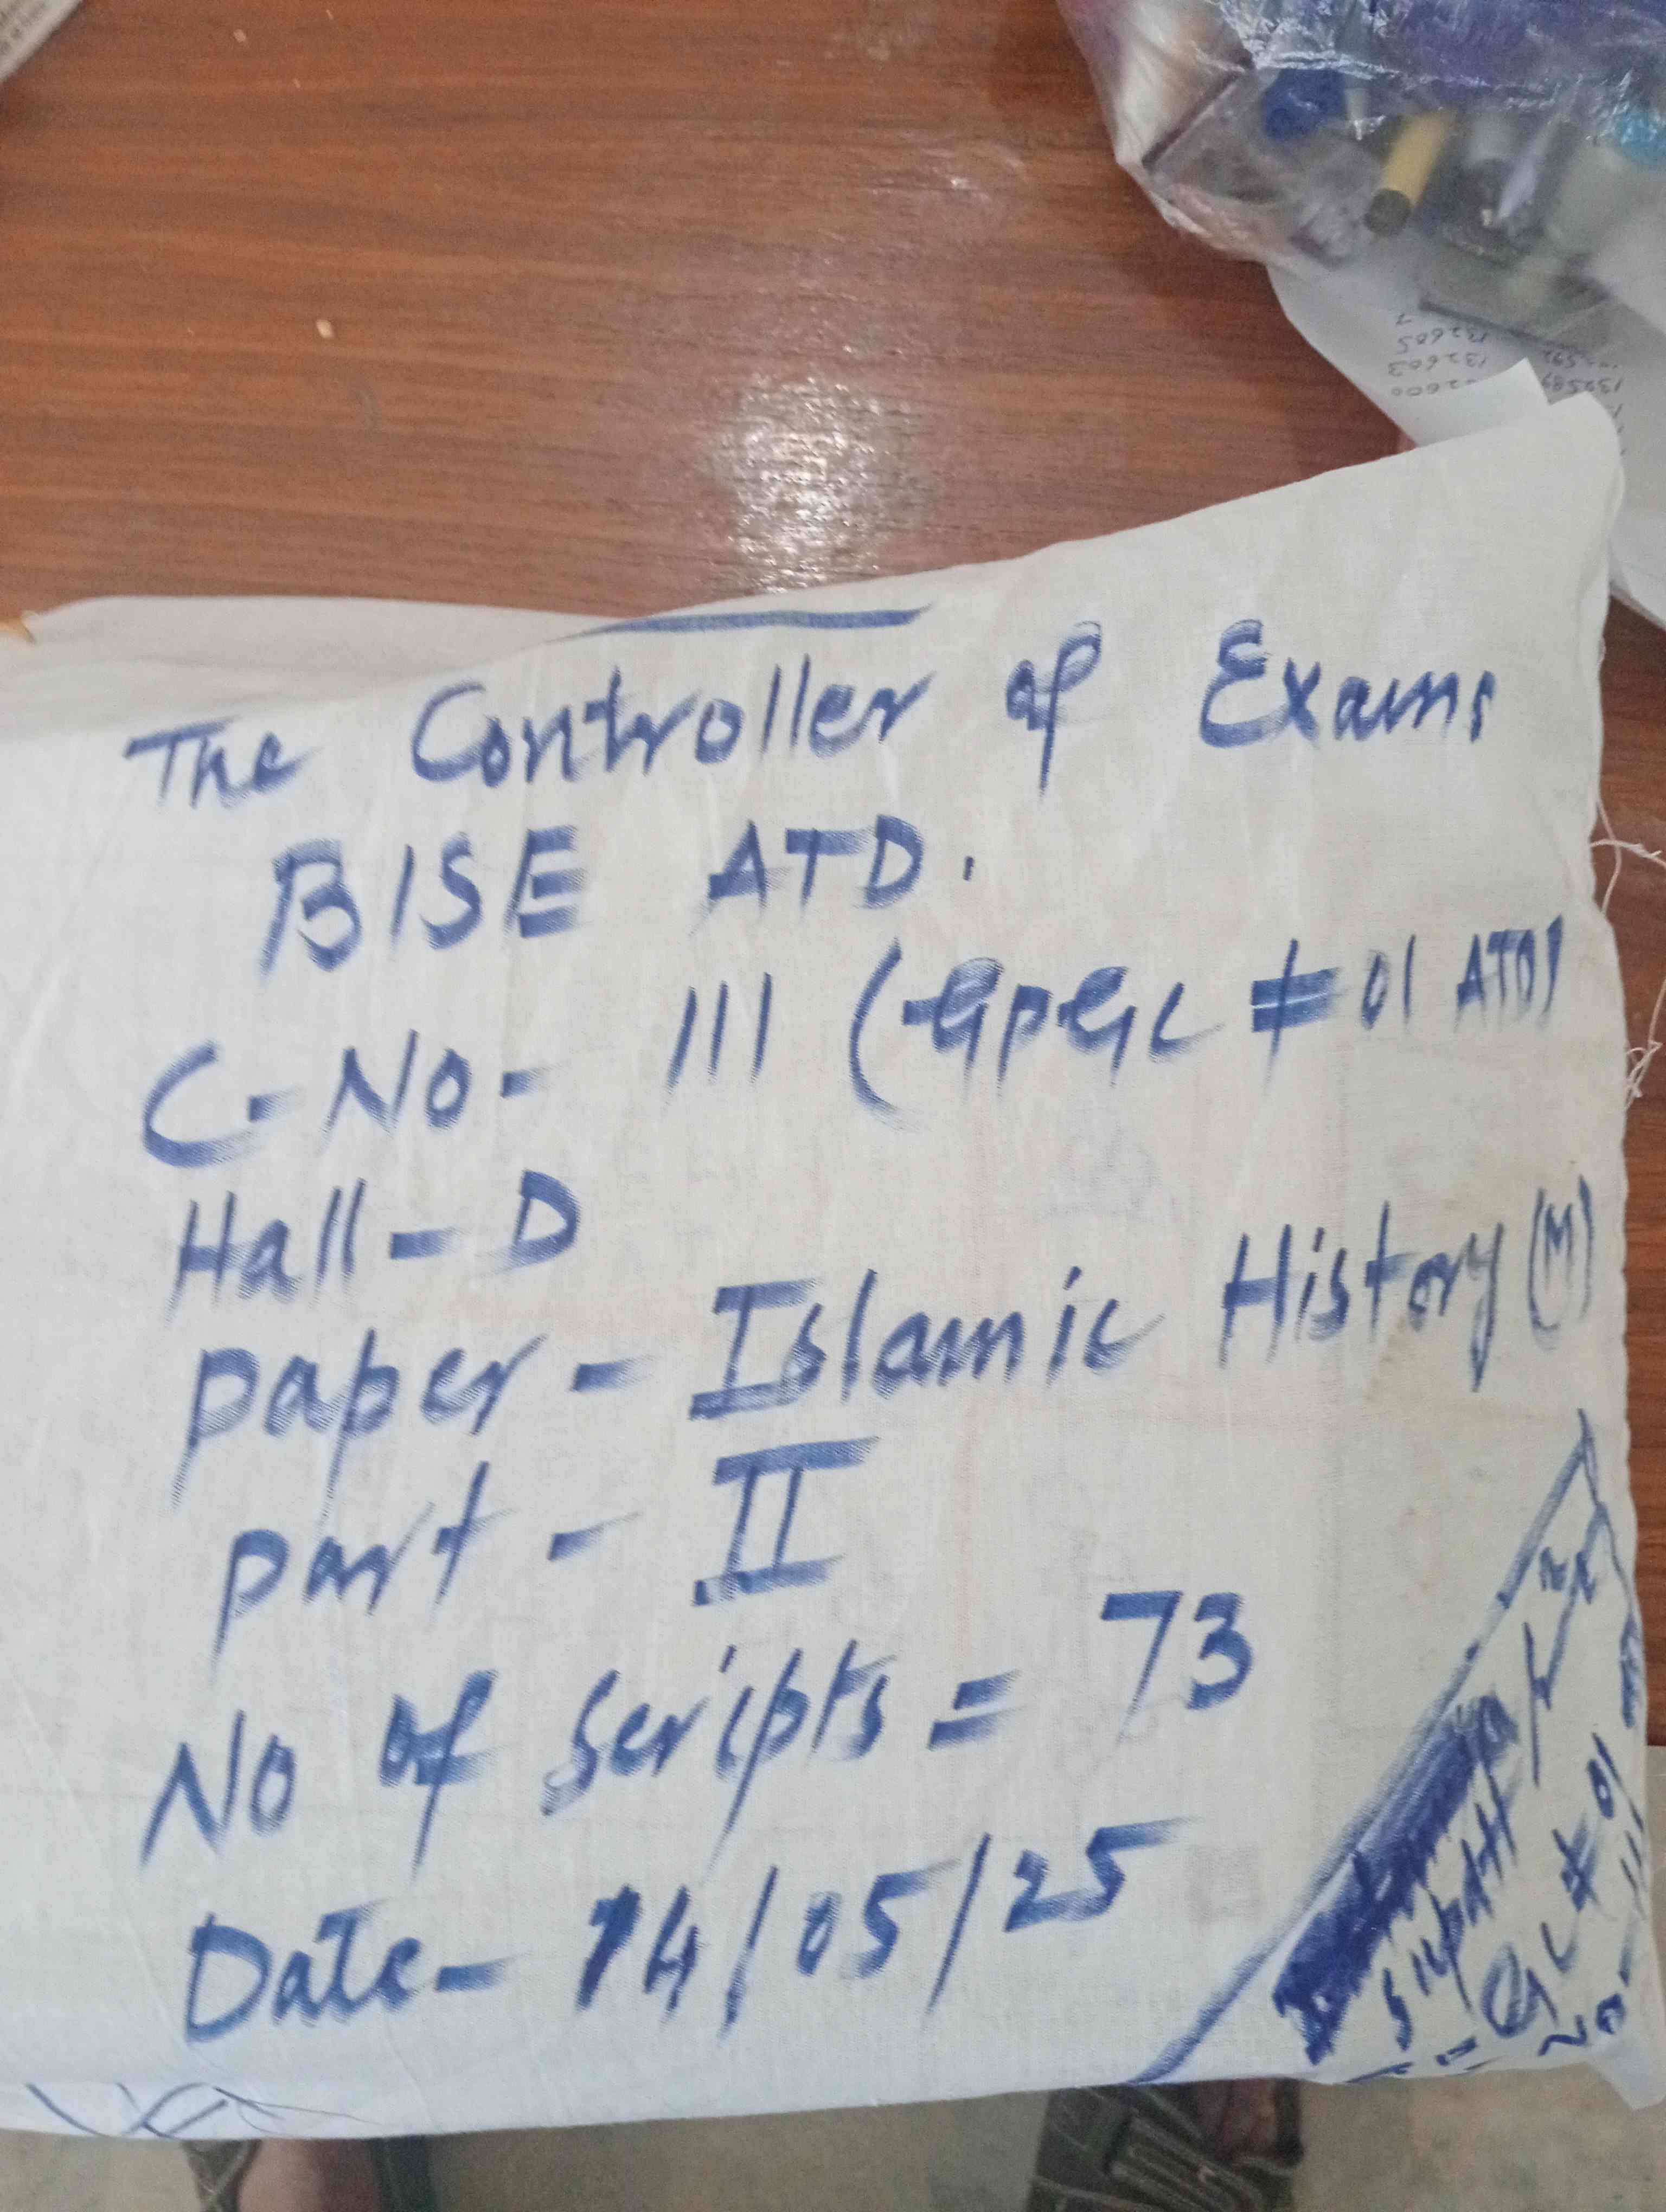 The Controller of Exams
BISE ATD.
C-No- 111 (GPGC # 01 ATD)
Hall - D
paper - Islamic History (M)
part - II
No of Scripts = 73
Date - 14/05/25
GC # 01
No - 111
132605
132603